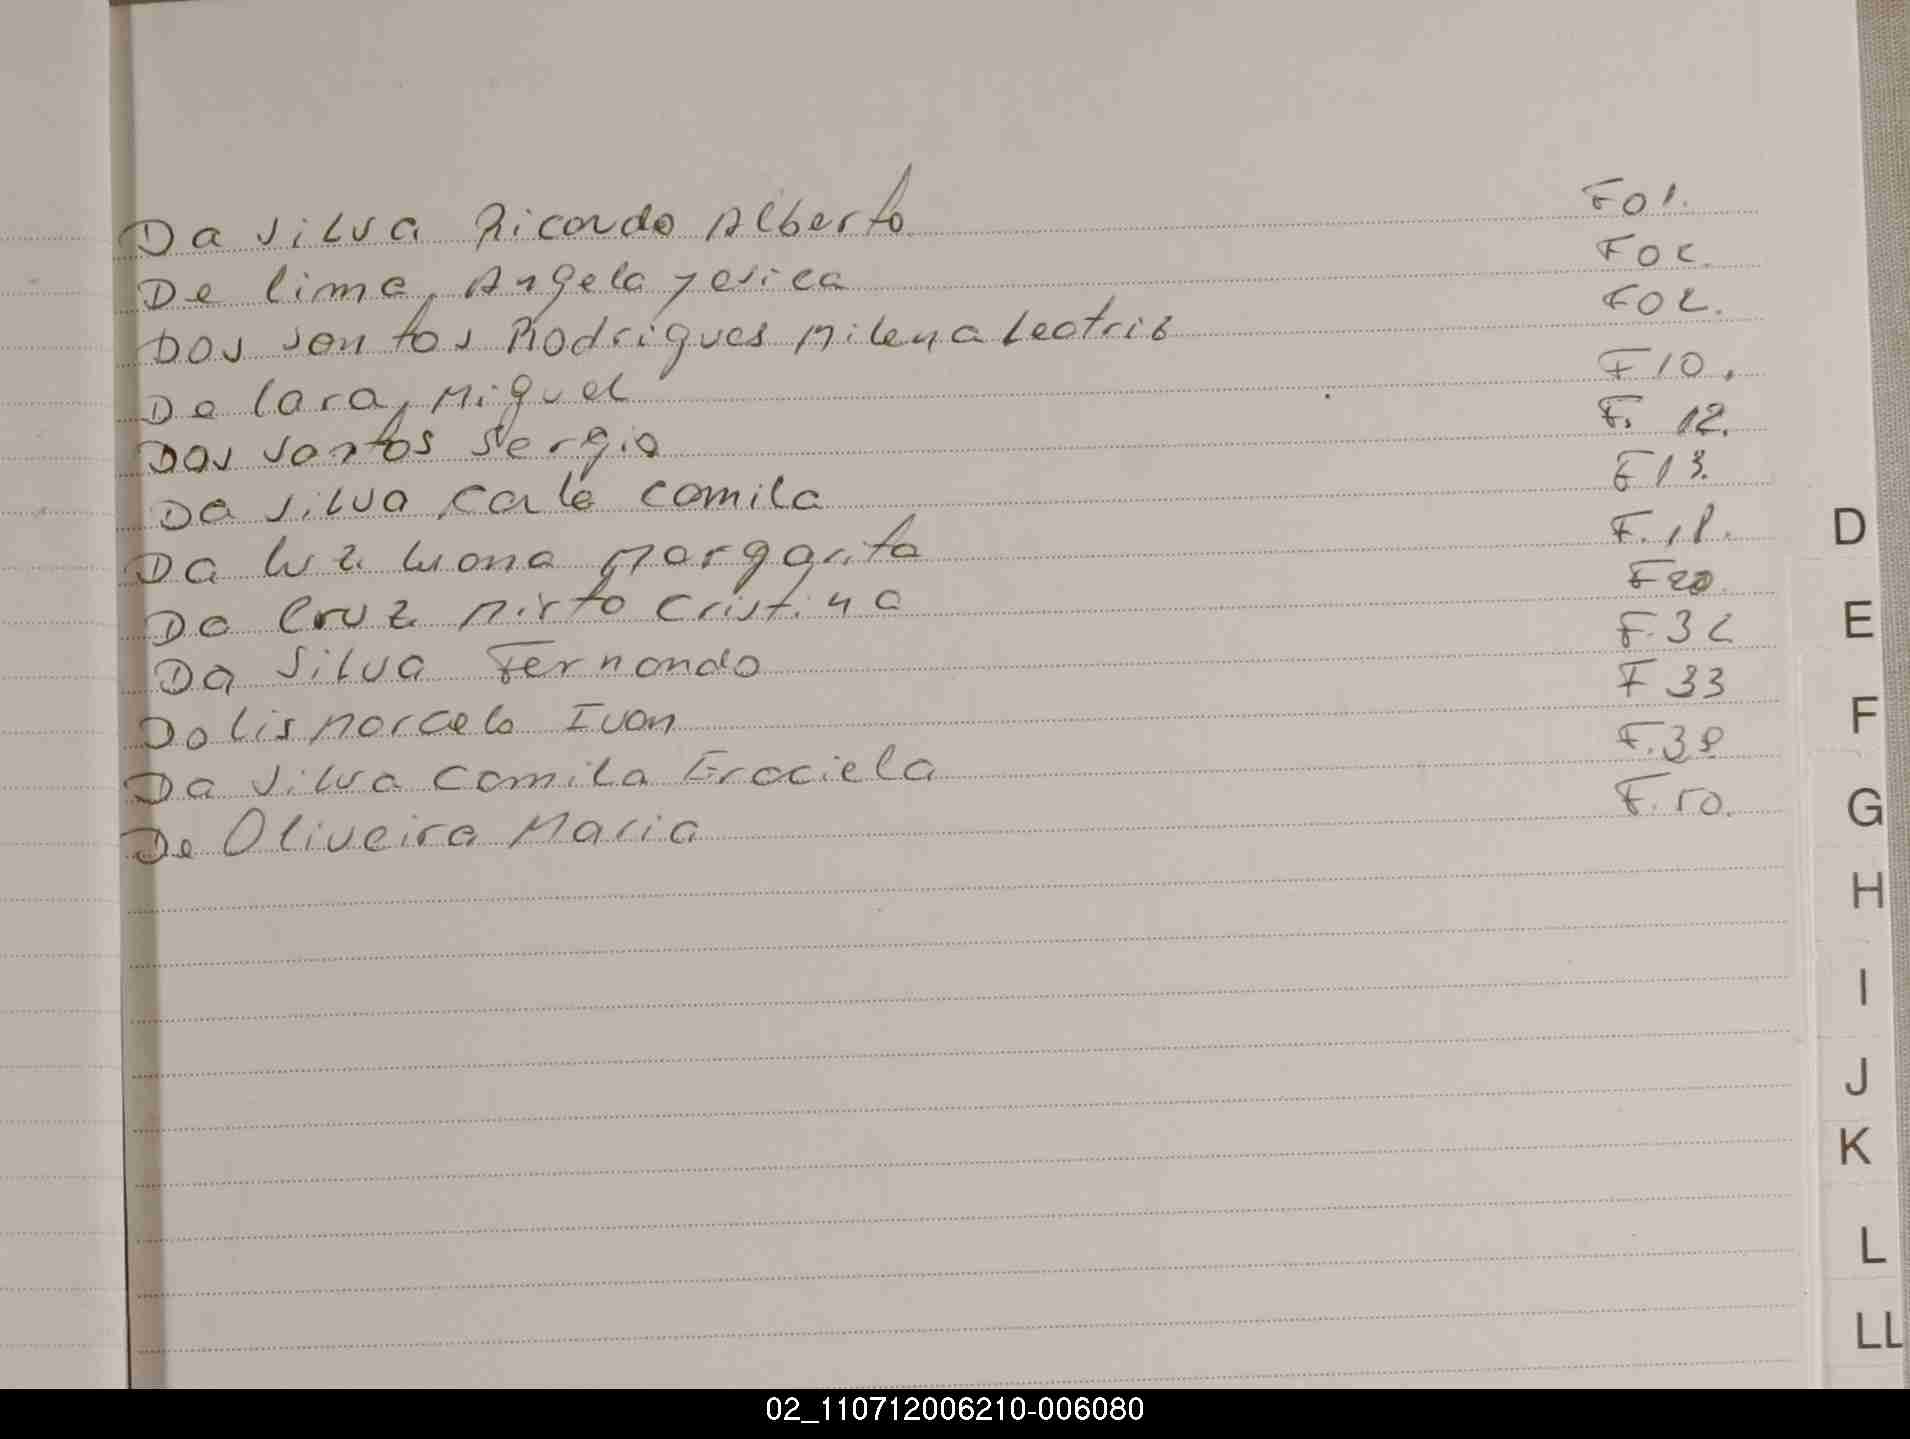 Da Silva Ricardo Alberto F01.
De lima, Angela Yesica F02.
Dos Santos Rodrigues Milena Beatris F02.
De lara, Miguel F10.
Dos Santos Sergio F. 12.
Da Silva, Carla Camila F13.
Da luz Luana Margarita F.18.
Da Cruz Mirta Cristina F20.
Da Silva Fernando F.32
Dalis Marcelo Ivan F 33
Da Silva Camila Graciela F.38
De Oliveira Maria F.50.
D
E
F
G
H
I
J
K
L
LL
02_110712006210-006080